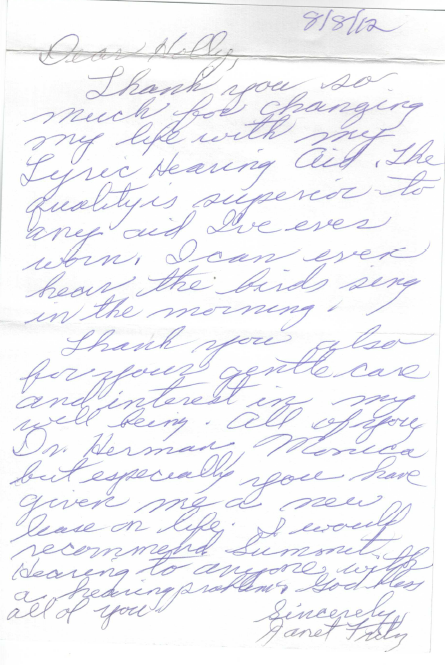 8/8/12
Dear Holly,
Thank you so
much for changing
my life with my
Lyric Hearing Aid. The
quality is superior to
any aid I've ever
worn. I can even
hear the birds sing
in the morning.
Thank you also
for your gentle care
and interest in my
will being. All of you
Dr. Herman, Monica
but especially you have
given me a new
lease on life. I would
recommend Summit
Hearing to anyone with
a hearing problem. God bless
all of you.
Sincerely,
Janet Fritz